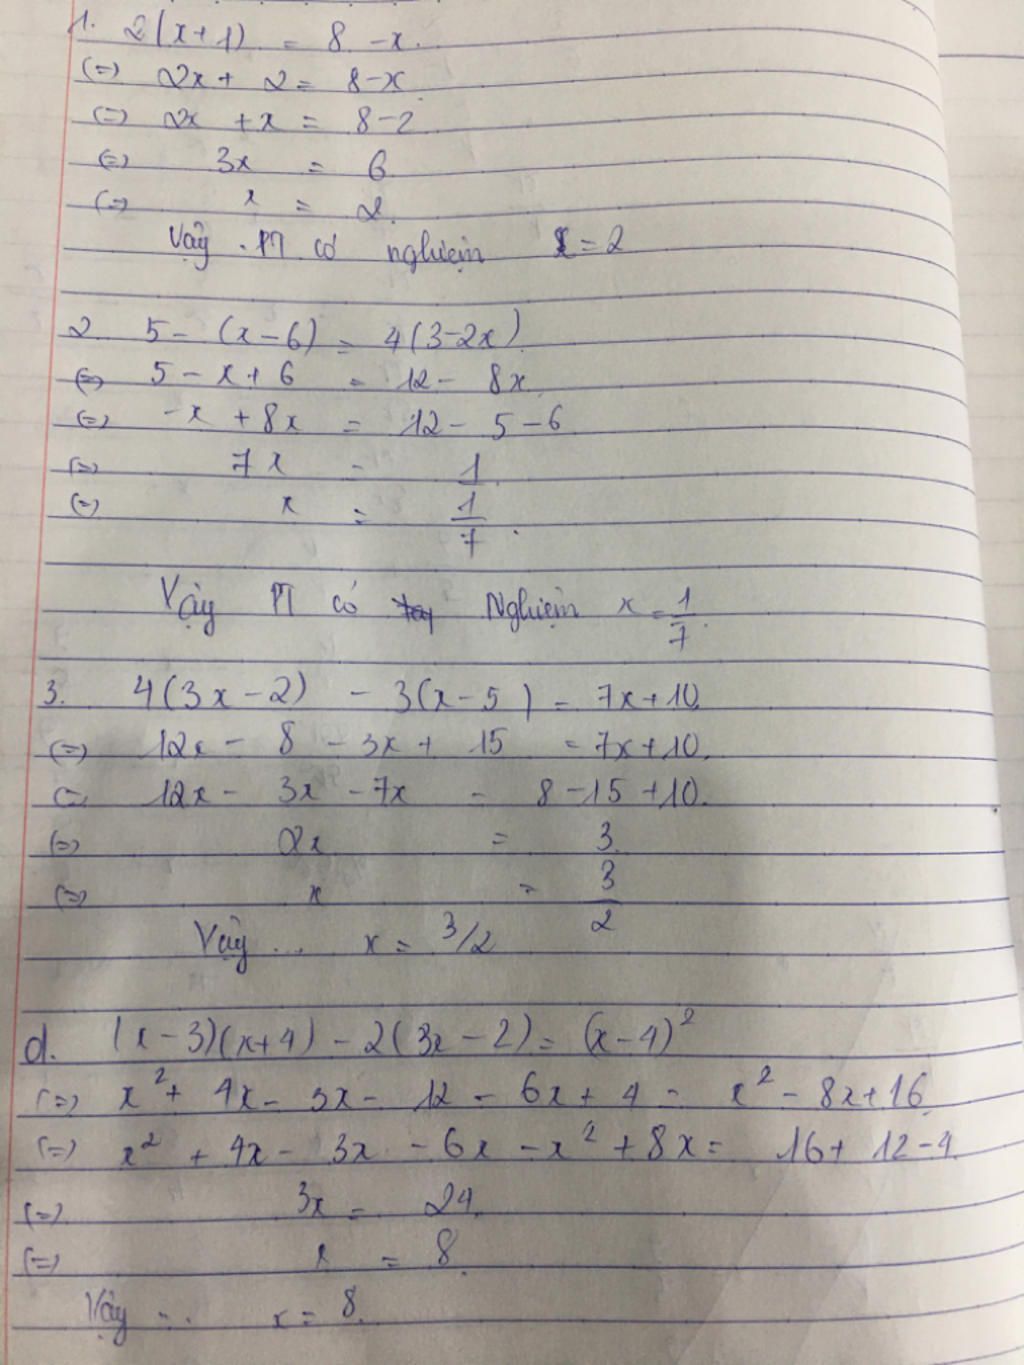 1. 2(x+1) = 8 -x.
(=) 2x + 2 = 8-x
(=) 2x +x = 8-2
(=) 3x = 6
(=) x = 2.
Vậy PT có nghiệm x = 2
2 5- (x-6) = 4(3-2x)
(=) 5-x+6 = 12- 8x
(=) -x +8x = 12- 5-6
(=) 7x = 1
(=) x = 1/7.
Vậy PT có Nghiệm x = 1/7.
3. 4(3x-2) - 3(x-5) = 7x+10.
(=) 12x - 8 - 3x + 15 = 7x+10.
(= 12x - 3x -7x = 8-15+10.
(=) 2x = 3
(=) x = 3/2
Vậy ... x = 3/2
d. (x-3)(x+4) - 2(3x-2) = (x-4)²
(=) x² + 4x - 3x - 12 - 6x + 4 = x² - 8x+16
(=) x² + 4x - 3x - 6x - x² + 8x = 16+ 12-4
(=) 3x = 24
(=) x = 8.
Vậy ... x = 8.